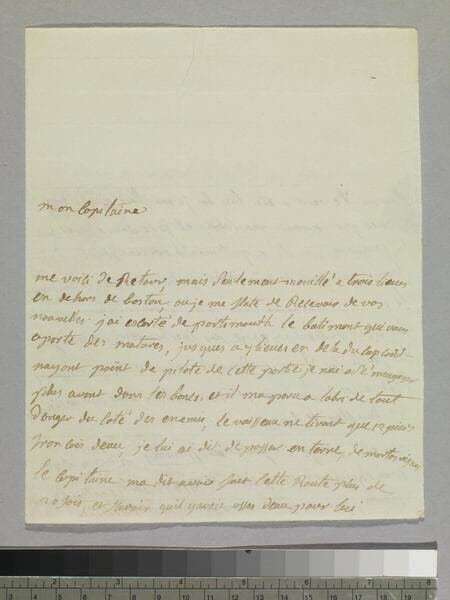 mon Capitaine
me voici de Retour, mais seulement mouillé a trois lieues
en dehors de boston, ou je me flate de Recevoir de vos
nouvelles. j'ai escorté de portsmouth le batiment qui vous
aporte des matures, jusques a 7 lieues en dela du cap
nayant point de pilote de cette partie je n'ai
plus avant dans les bancs, et il m'a paru a l'abri de tout
danger du coté des enemis, le vaisseau ne tirant que 12 pieds
deau, je lui ai dit de passer en terre de
le Capitaine ma dit avoir fait cette Route plus de
20 fois, et savoir quil y avoit asses deau pour lui